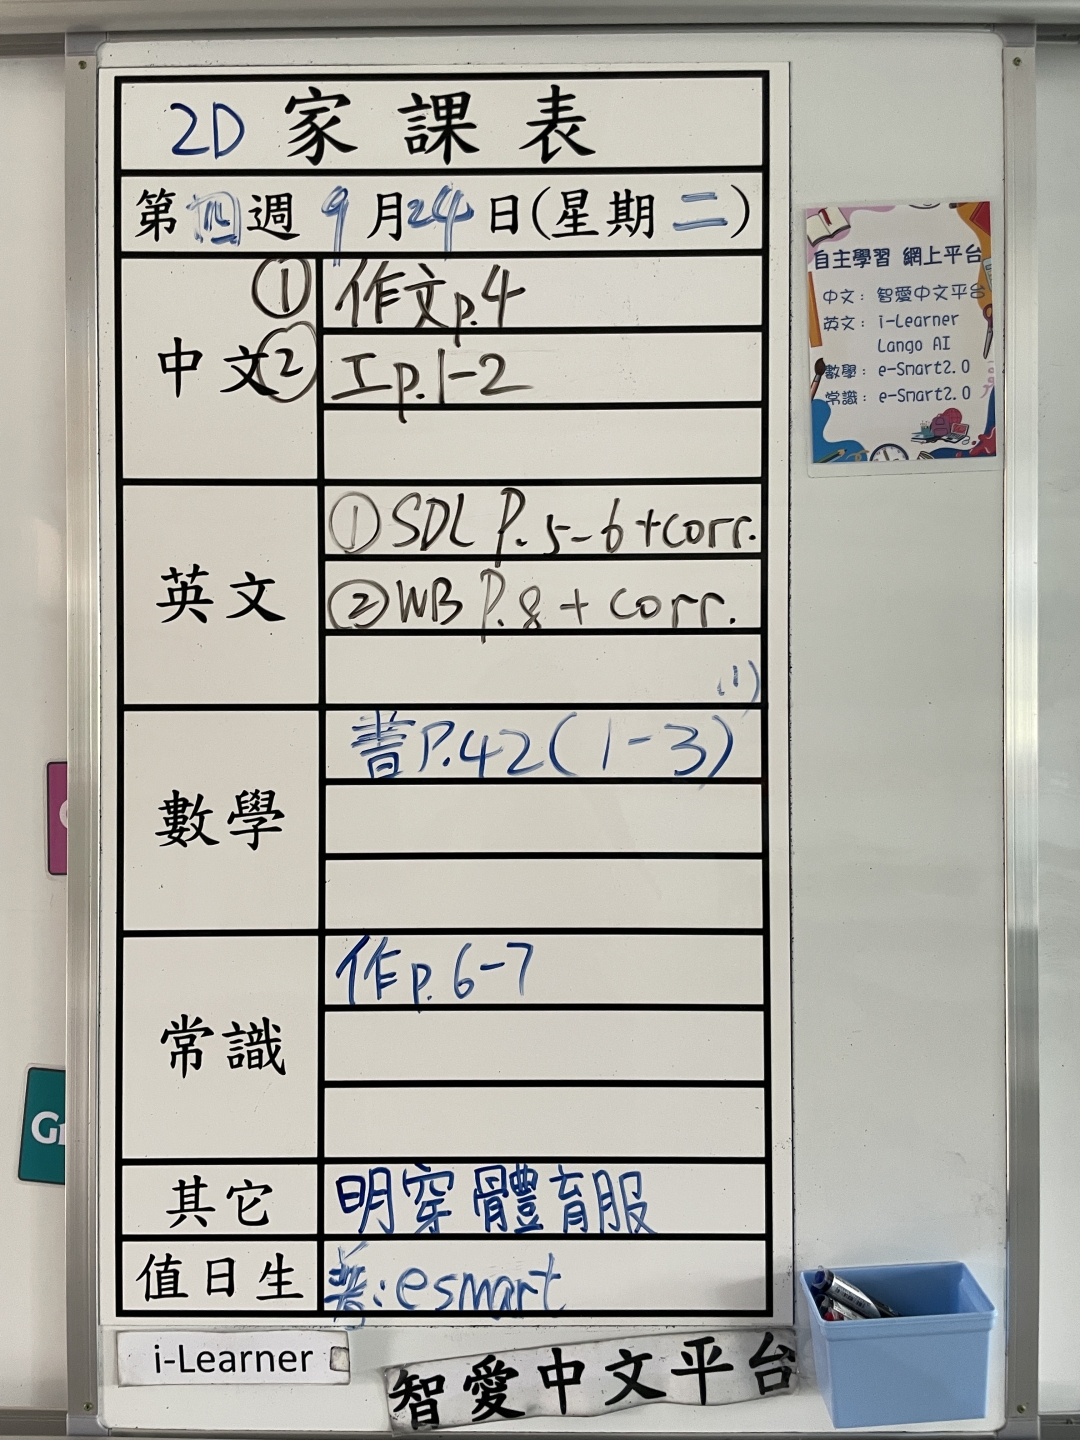 2D 家課表
第四週 9月24日(星期二)
中文
① 作文p.4
② 工p.1-2
英文
① SDL P.5-6+corr.
② WB P.8+corr.
(1)
數學
書P.42(1-3)
常識
作p.6-7
其它
明穿體育服
值日生
普:esmart
i-Learner
智愛中文平台
自主學習 網上平台
中文：智愛中文平台
英文：i-Learner
Lango AI
數學：e-Smart2.0
常識：e-Smart2.0